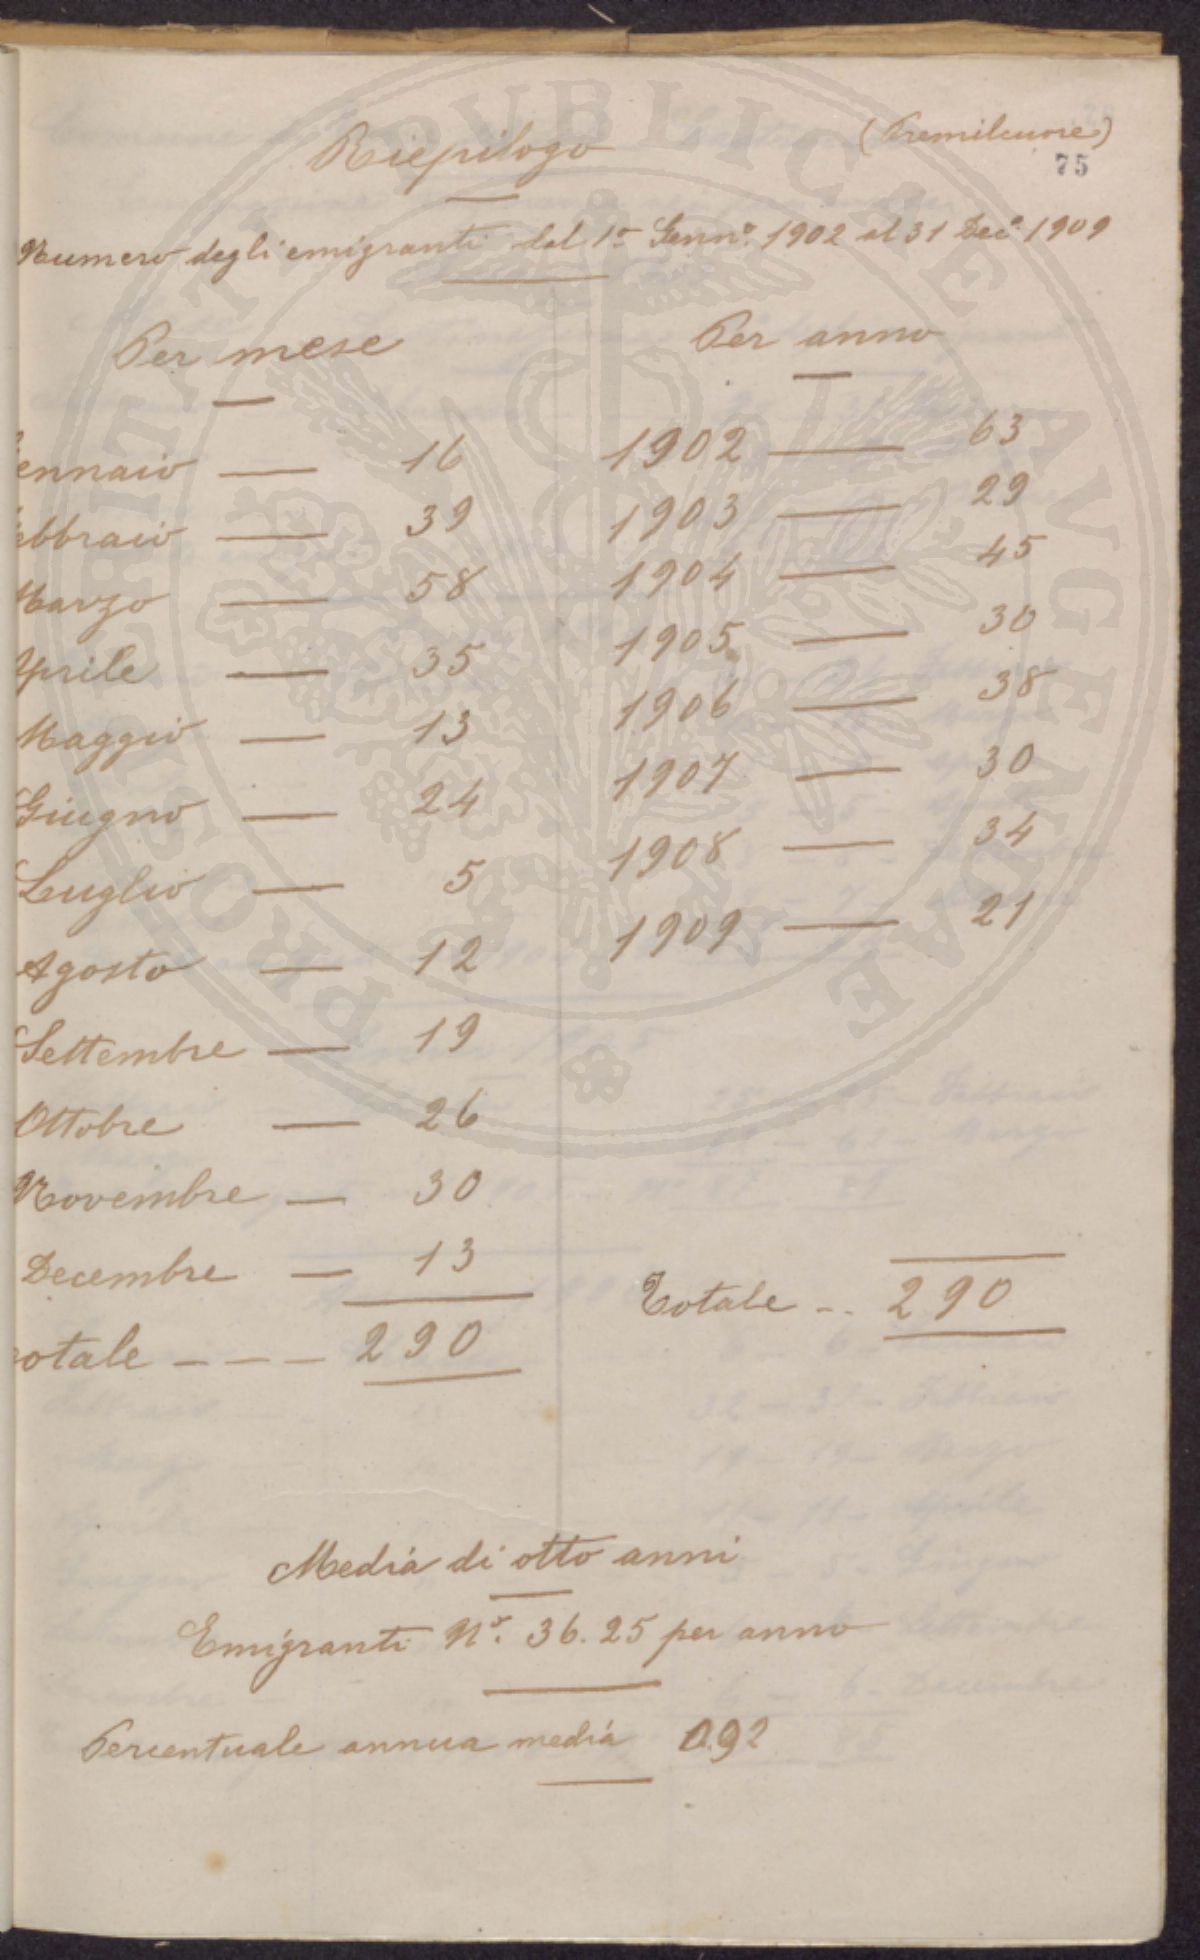 (Premilcuore)
75
Riepilogo
Numero degli emigranti dal 1º Genn.º 1902 al 31 Dec.e 1909
Per mese
ennaio — 16
ebbraio — 39
Marzo — 58
Aprile — 35
Maggio — 13
Giugno — 24
Luglio — 5
Agosto — 12
Settembre — 19
Ottobre — 26
Novembre — 30
Decembre — 13
otale — — — — 290
Per anno
1902 — 63
1903 — 29
1904 — 45
1905 — 30
1906 — 38
1907 — 30
1908 — 34
1909 — 21
Totale -- 290
Media di otto anni
Emigranti Nº. 36.25 per anno
Percentuale annua media 0.92
PROSPERITATI PVBLICAE AVGENDAE